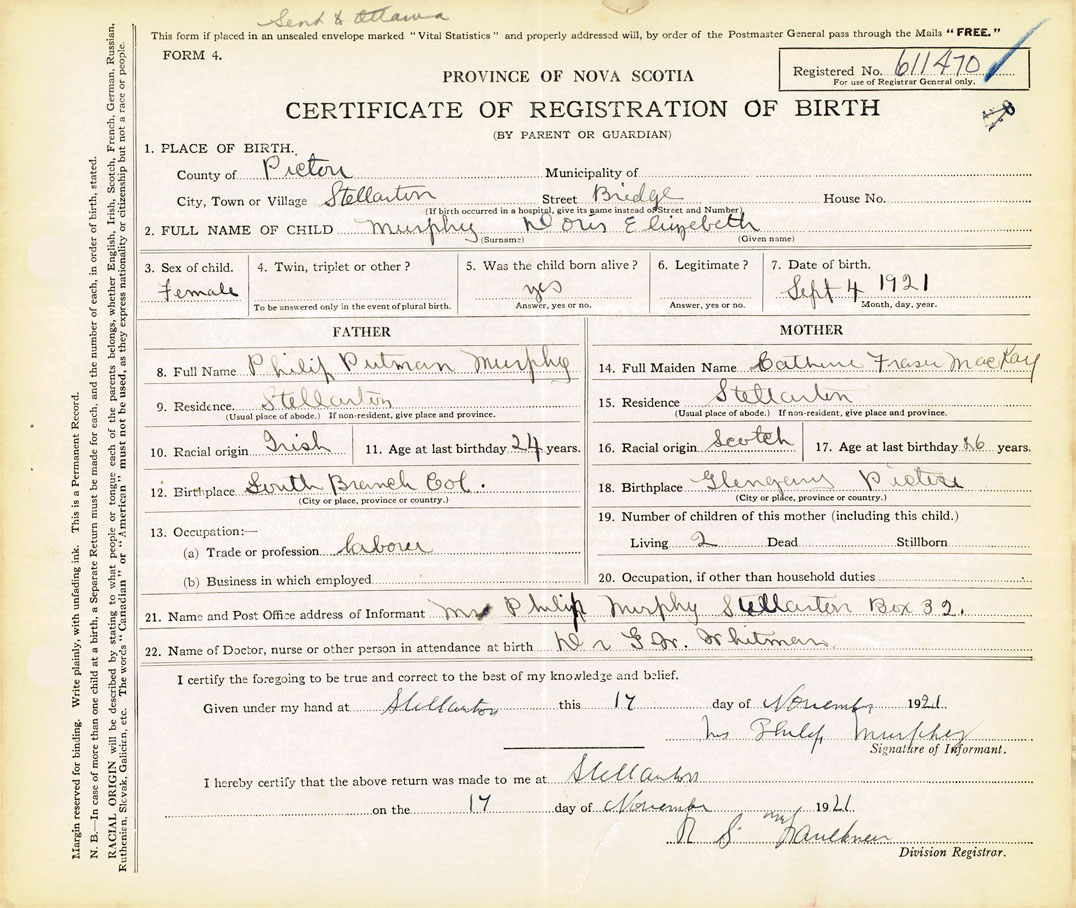 Send to Ottawa
This form if placed in an unsealed envelope marked "Vital Statistics" and properly addressed will, by order of the Postmaster General pass through the Mails "FREE."
FORM 4.
Registered No. 611470
For use of Registrar General only.
PROVINCE OF NOVA SCOTIA
CERTIFICATE OF REGISTRATION OF BIRTH
(BY PARENT OR GUARDIAN)
1. PLACE OF BIRTH.
County of Pictou Municipality of
City, Town or Village Stellarton Street Bridge House No.
(If birth occurred in a hospital, give its name instead of Street and Number)
2. FULL NAME OF CHILD Murphy Doris Elizebeth
(Surname) (Given name)
3. Sex of child. 4. Twin, triplet or other? 5. Was the child born alive? 6. Legitimate? 7. Date of birth.
Female yes Sept 4 1921
To be answered only in the event of plural birth. Answer, yes or no. Answer, yes or no. Month, day, year.
FATHER MOTHER
8. Full Name Philip Putman Murphy
14. Full Maiden Name Cathrine Fraser MacKay
9. Residence. Stellarton
(Usual place of abode.) If non-resident, give place and province.
15. Residence Stellarton
(Usual place of abode.) If non-resident, give place and province.
10. Racial origin Irish 11. Age at last birthday 24 years.
16. Racial origin Scotch 17. Age at last birthday 26 years.
12. Birthplace South Branch Col.
(City or place, province or country.)
18. Birthplace Pictou
(City or place, province or country.)
13. Occupation:—
(a) Trade or profession laborer
(b) Business in which employed
19. Number of children of this mother (including this child.)
Living 2 Dead Stillborn
20. Occupation, if other than household duties
21. Name and Post Office address of Informant Mrs Philip Murphy Stellarton Box 32.
22. Name of Doctor, nurse or other person in attendance at birth Dr G. W. Whitman
I certify the foregoing to be true and correct to the best of my knowledge and belief.
Given under my hand at Stellarton this 17 day of November 1921.
Mrs Philip Murphy
Signature of Informant.
I hereby certify that the above return was made to me at Stellarton
on the 17 day of November 1921
Faulkner
Division Registrar.
Margin reserved for binding. Write plainly, with unfading ink. This is a Permanent Record.
N. B.—In case of more than one child at a birth, a Separate Return must be made for each, and the number of each, in order of birth, stated.
RACIAL ORIGIN will be described by stating to what people or tongue each of the parents belongs, whether English, Irish, Scotch, French, German, Russian,
Ruthenian, Slovak, Galician, etc. The words "Canadian" or "American" must not be used, as they express nationality or citizenship but not a race or people.